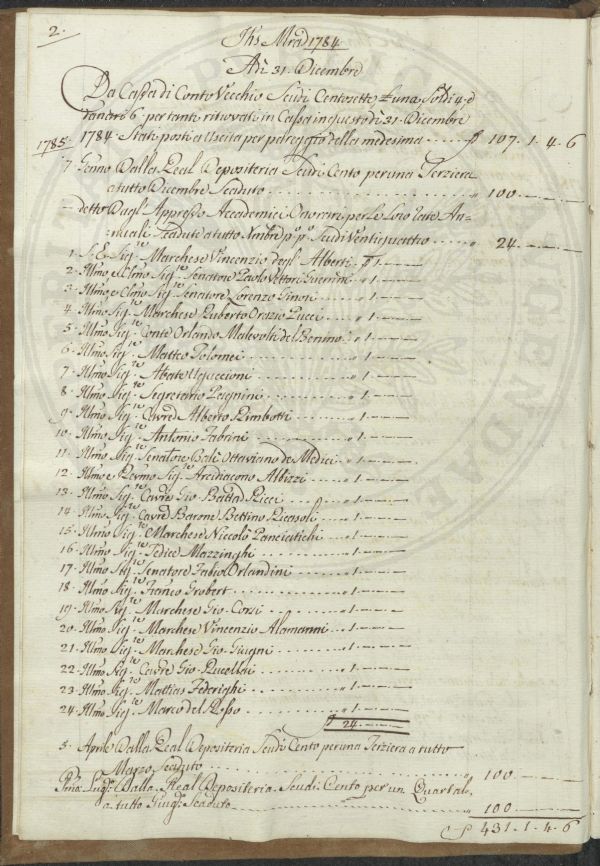 2.
Ihs Mred 1784
Adì 31. Dicembre
Da Cassa di Conto Vecchio Scudi Centosette £una, Soldi 4. e
danari 6. per tanti ritrovati in Cassa in questo dì 31. Dicembre
1784. Stati posti a Uscita per pareggio della medesima ..... 107.1.4.6
1785.
7. Genno. Dalla Real Depositeria Scudi Cento per una Terziera
a tutto Dicembre Scaduto ..... " 100.
detto Dagl' Appresso Accademici Onorari per le Loro Tasse An-
nuali Scadute a tutto Xmbre p.o p.o Scudi Ventiquattro ..... " 24.
1. S. E. Sig.re Marchese Vincenzio degl' Alberti. 1.
2. Illmo e Clmo Sig.re Senatore Paolo Vettori Guerrini " 1.
3. Illmo, e Clmo Sig.re Senatore Lorenzo Ginori " 1.
4. Illmo Sig.re Marchese Ruberto Orazio Pucci " 1.
5. Illmo Sig.re Conte Orlando Malevolti del Benino " 1.
6. Illmo Sig.re Matteo Tolomei " 1.
7. Illmo Sig.re Abate Uguccioni " 1.
8. Illmo Sig.re Segretario Pelegnini " 1.
9. Illmo Sig.re Cavre Alberto Rimbotti " 1.
10. Illmo Sig.re Antonio Fabrini " 1.
11. Illmo Sig.re Senatore Balì Ottaviano de Medici " 1.
12. Illmo e Revmo Sig.re Arcidiacono Albizzi " 1.
13. Illmo Sig.re Cavre Gio. Batta Ricci " 1.
14. Illmo Sig.re Cavre Barone Bettino Ricasoli " 1.
15. Illmo Sig.re Marchese Niccolò Panciatichi " 1.
16. Illmo Sig.re Fedice Mazzinghi " 1.
17. Illmo Sig.re Senatore Fabio Orlandini " 1.
18. Illmo Sig.re Franco Grobert " 1.
19. Illmo Sig.re Marchese Gio. Corsi " 1.
20. Illmo Sig.re Marchese Vincenzio Alamanni " 1.
21. Illmo Sig.re Marchese Gio. Giugni " 1.
22. Illmo Sig.re Cavre Gio. Rucellai " 1.
23. Illmo Sig.re Mattias Federighi " 1.
24. Illmo Sig.re Marco del Rosso " 1.
24.
5. Aprile Dalla Real Depositeria Scudi Cento per una Terziera a tutto
Marzo Scaduto ..... " 100.
Pmo. Lugl. Dalla Real Depositeria Scudi Cento per un Quartale
a tutto Giug.o Scaduto ..... " 100.
431.1.4.6